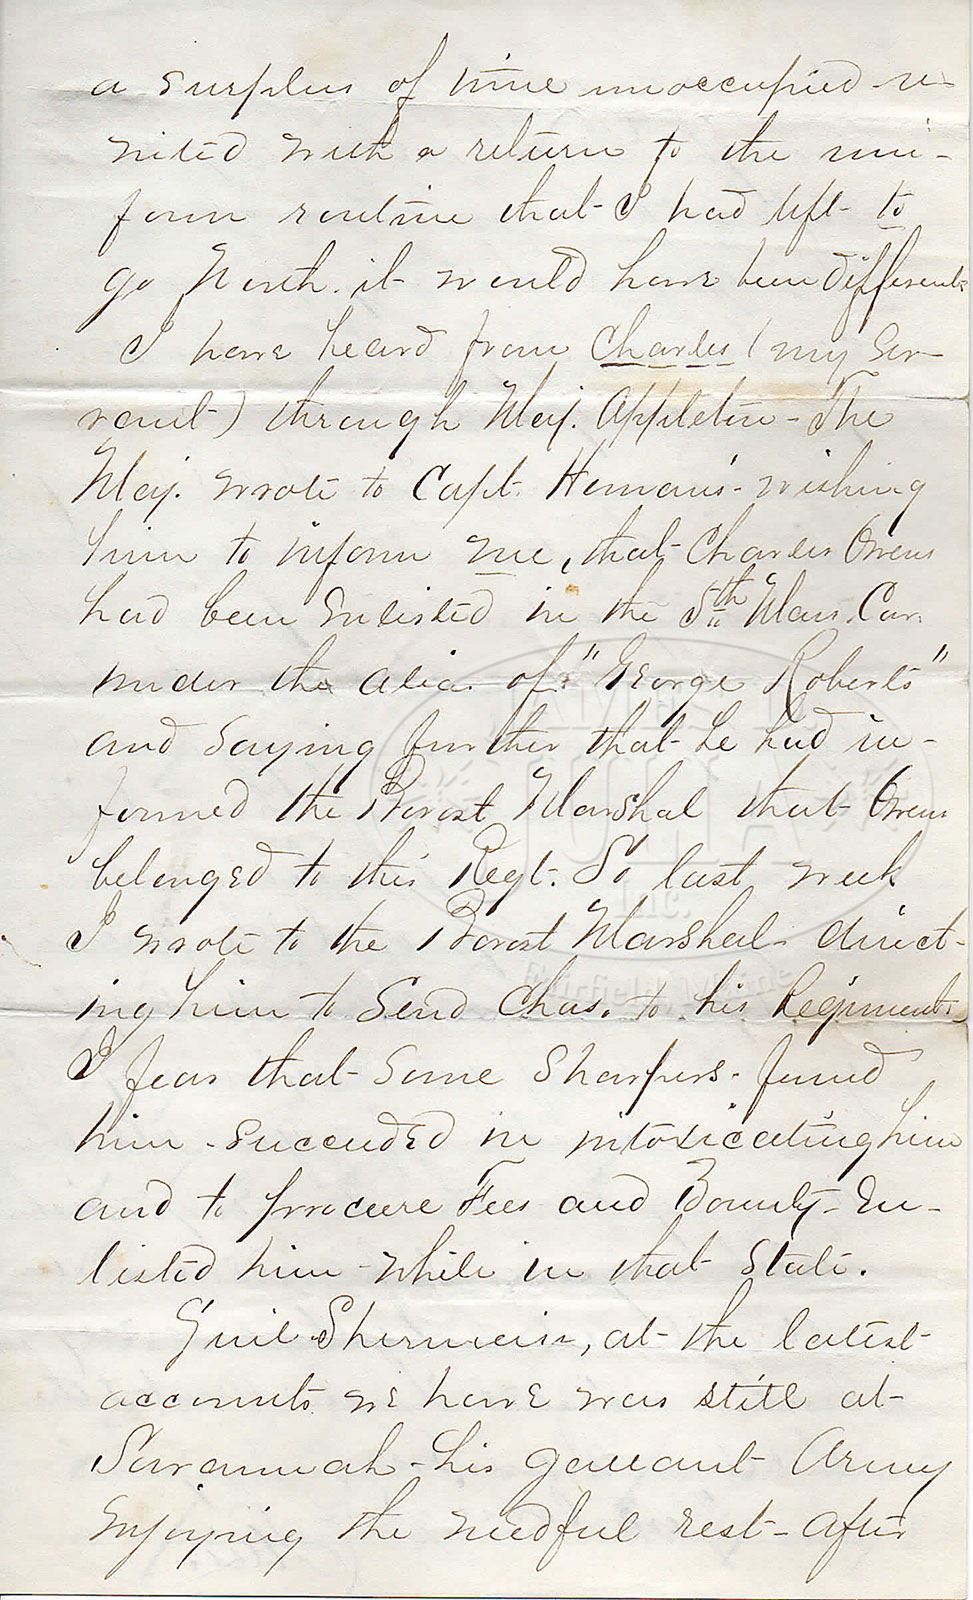 a surplus of time unoccupied u-
nited with a return to the uni-
form routine that I had left to
go North. it would have been different
I have heard from Charles (my Ser-
vant) through Maj. Appleton - The
Maj. wrote to Capt. Homans - wishing
him to inform me, that Charles Owens
had been Enlisted in the 5th Mass. Cav.
under the alias of "George Roberts"
and Saying further that he had in-
formed the Provost Marshal that Owens
belonged to this Regt. So last week
I wrote to the Provost Marshal - direct-
ing him to Send Chas. to his Regiment.
I fear that Some Sharpers - found
him - succeeded in intoxicating him
and to procure Fees and Bounty - En-
listed him - while in that State.
Genl Sherman, at the latest
accounts we have was still at
Savannah - his gallant Army
enjoying the needful rest - after